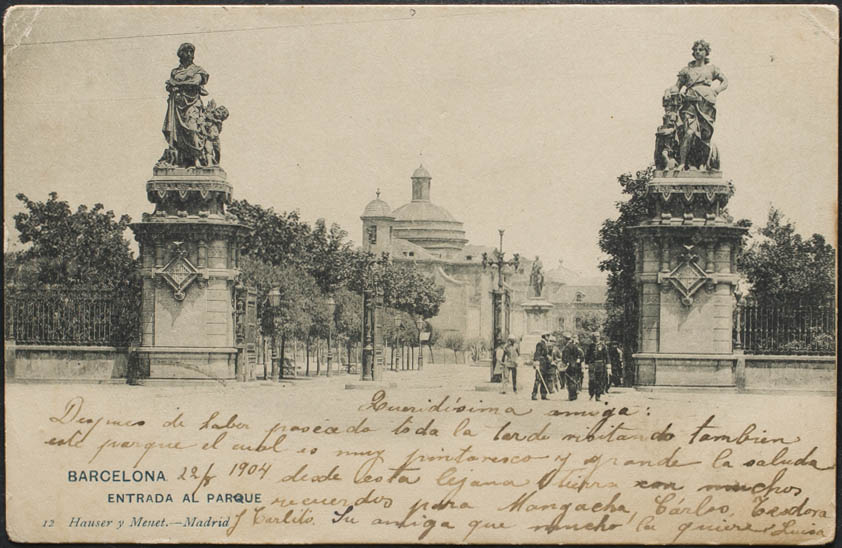 Queridísima amiga:
Despues de haber paseado toda la tarde visitando también
este parque el cual es muy pintoresco y grande la saluda
BARCELONA 22/ 1904 desde esta lejana tierra con muchos
ENTRADA AL PARQUE recuerdos para Mangacha, Cárlos, Teodora
12 Hauser y Menet.—Madrid y Carlito. Su amiga que mucho la quiere Luisa